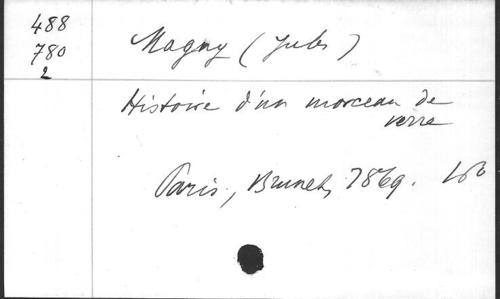 488
780
2
Magny (Jules)
Histoire d'un morceau de
verre
Paris, Brunet, 1869. 16°